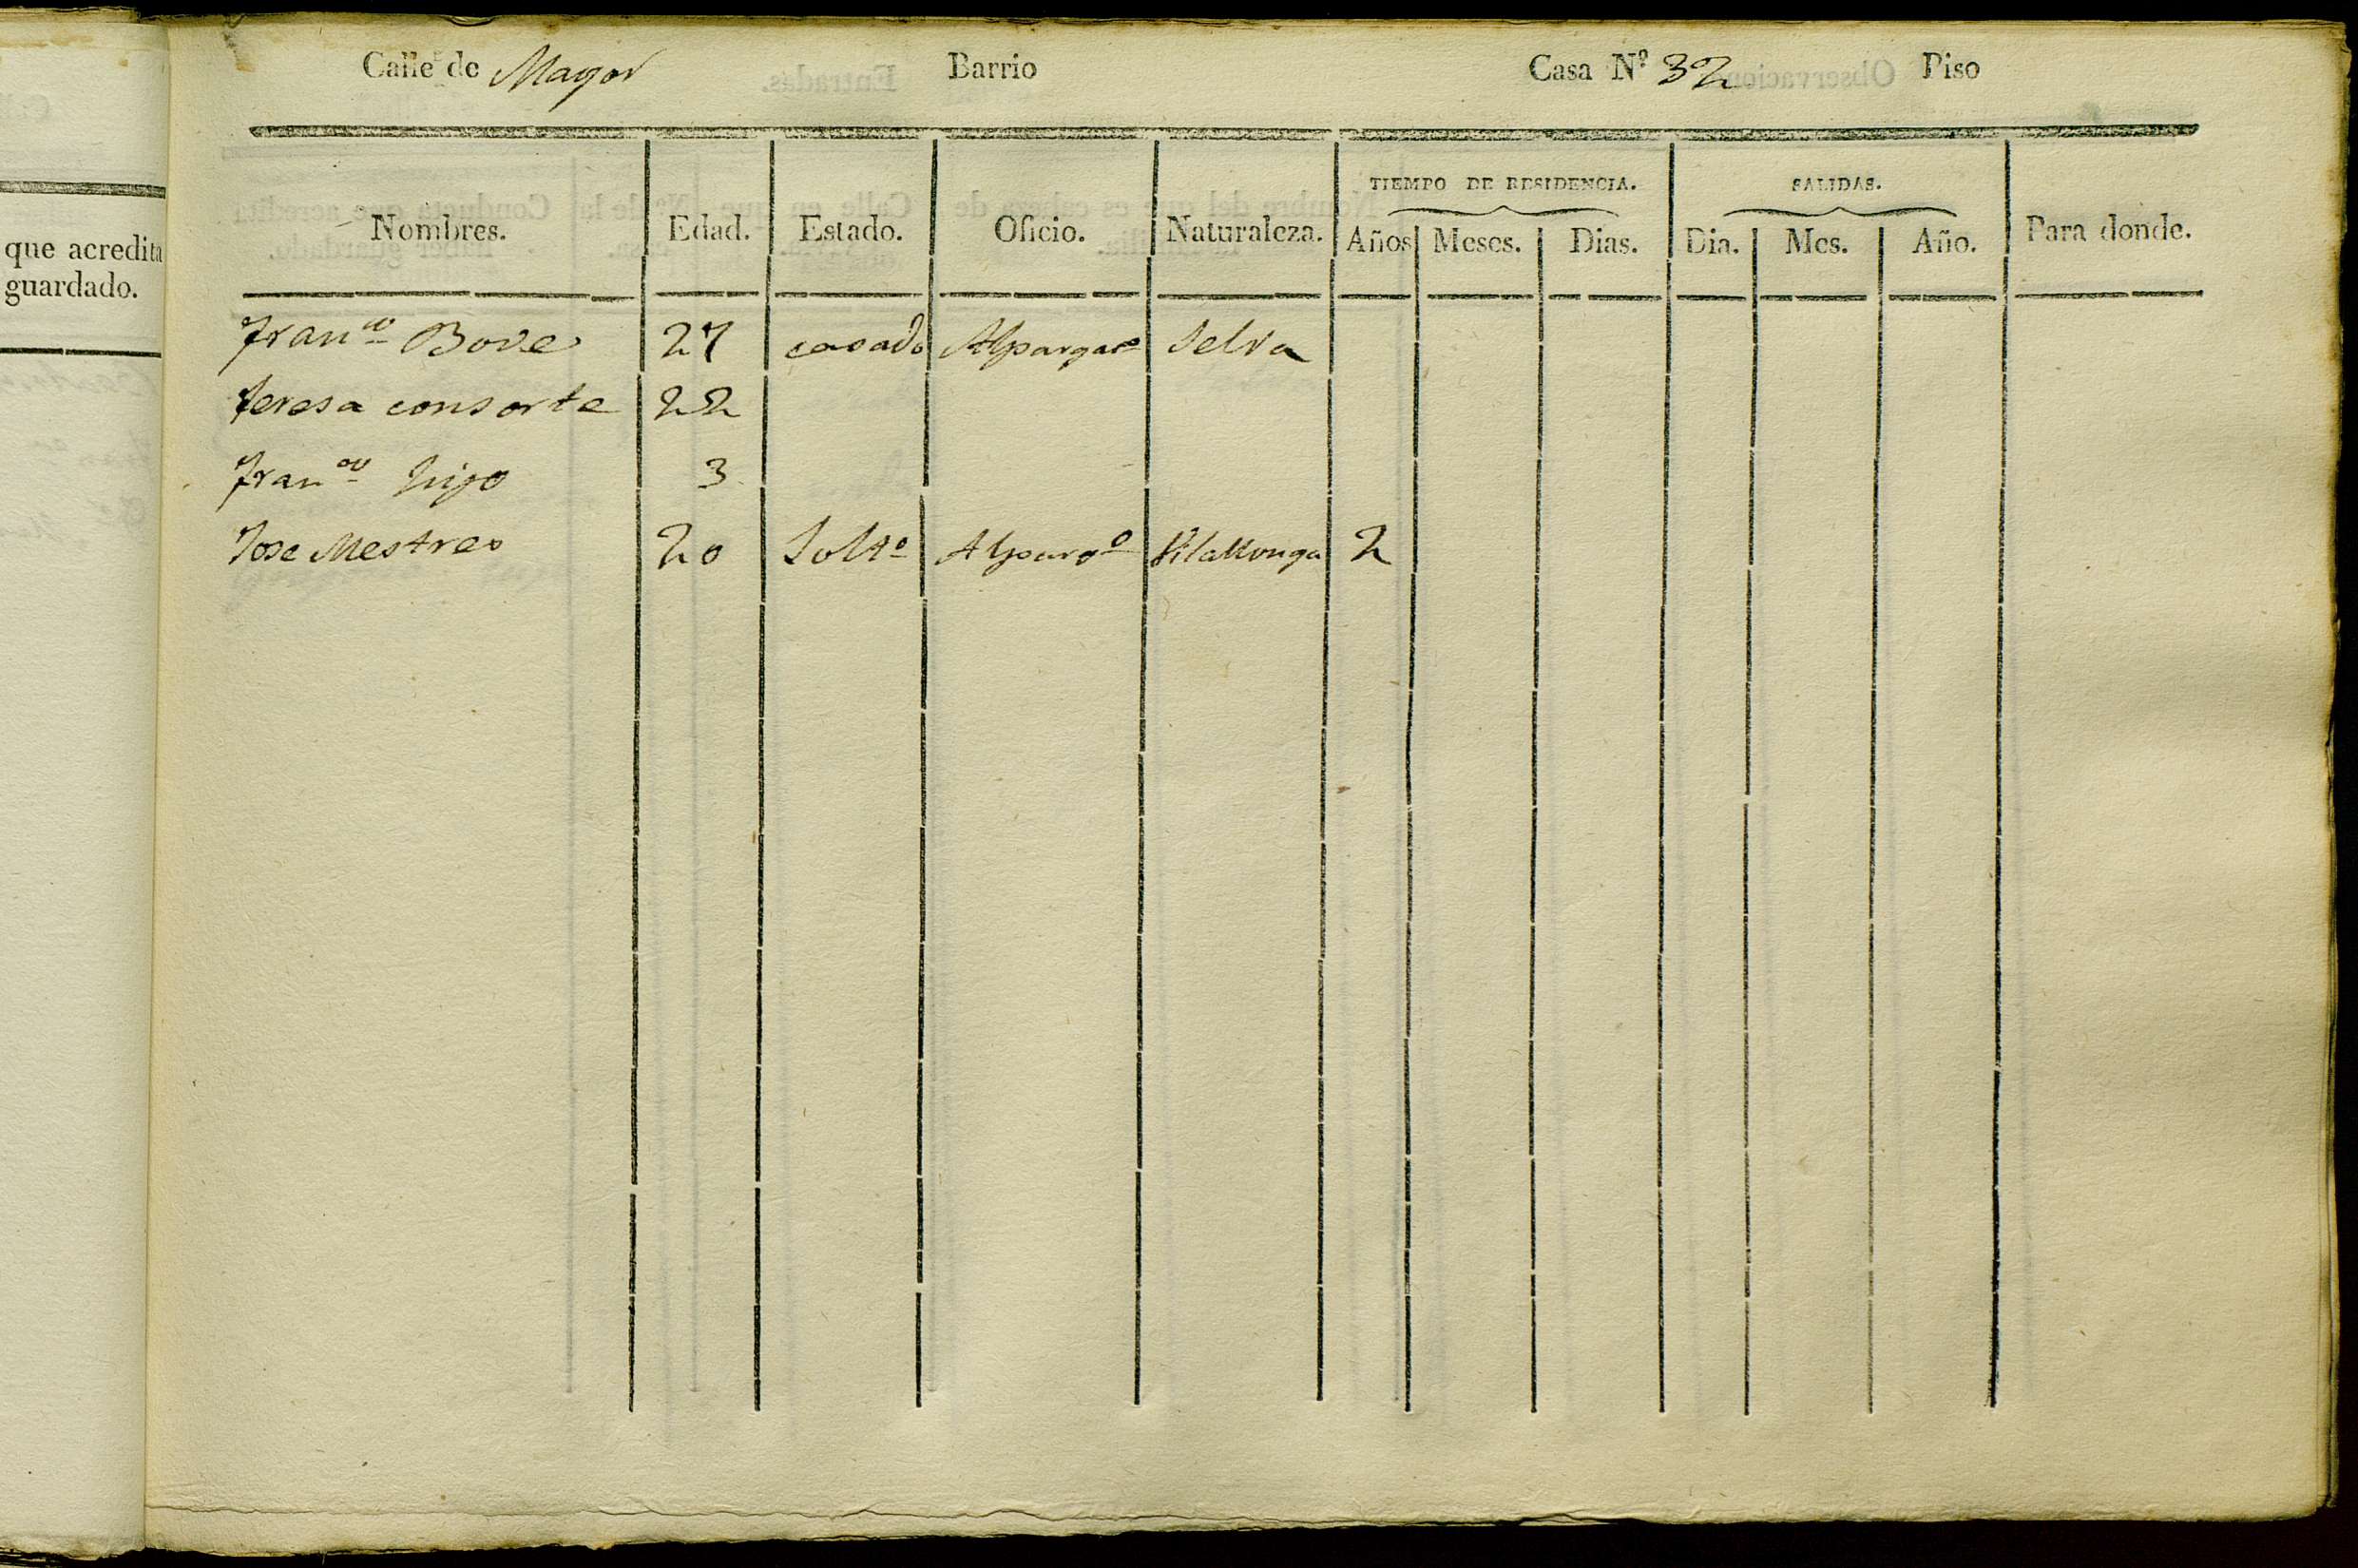 Calle de Mayor Barrio Casa Nº 32 Piso
TIEMPO DE RESIDENCIA. SALIDAS.
Nombres. Edad. Estado. Oficio. Naturaleza. Años Meses. Dias. Dia. Mes. Año. Para donde.
que acredita
guardado.
Franco Bove 27 casado Alpargaro Selva
Teresa consorte 22
Franco hijo 3
Jose Mestres 20 Solto Alpargo Vilallonga 2